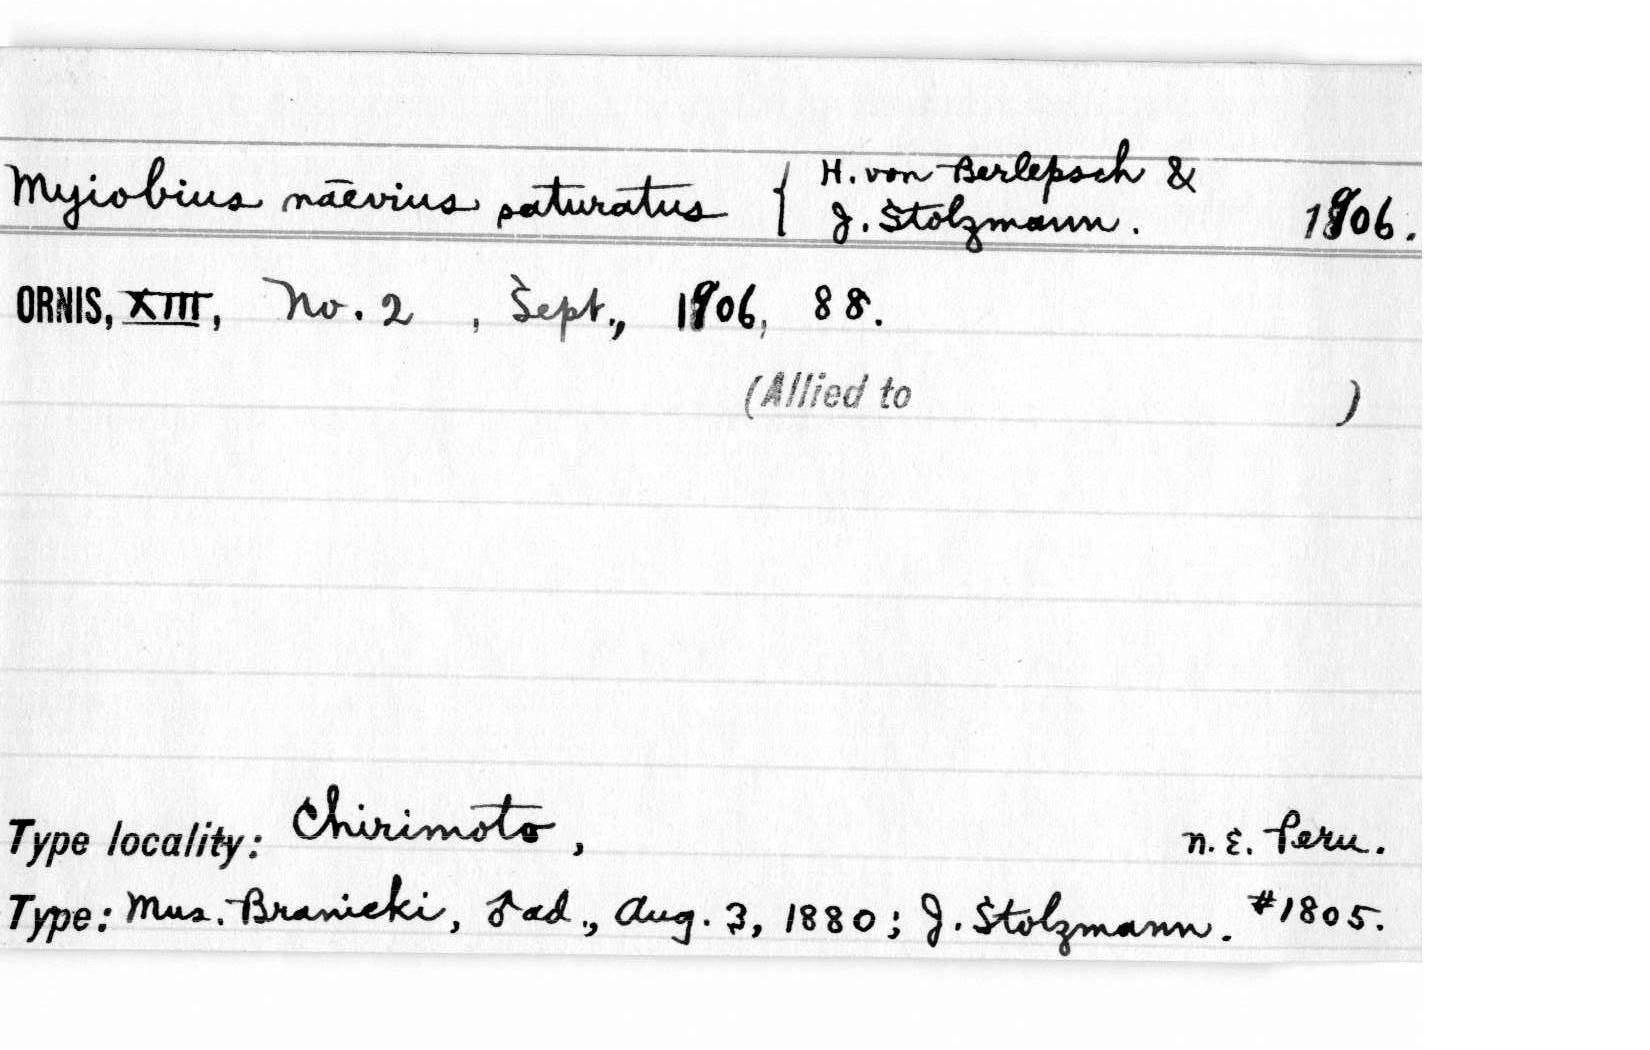 Myiobius naevius saturatus { H. von Berlepsch &
J. Stolzmann. 1906.
ORNIS, XIII, No. 2, Sept., 1906, 88.
(Allied to )
Type locality: Chirimoto, n. E. Peru.
Type: Mus. Branicki, ♂ ad., Aug. 3, 1880; J. Stolzmann. #1805.